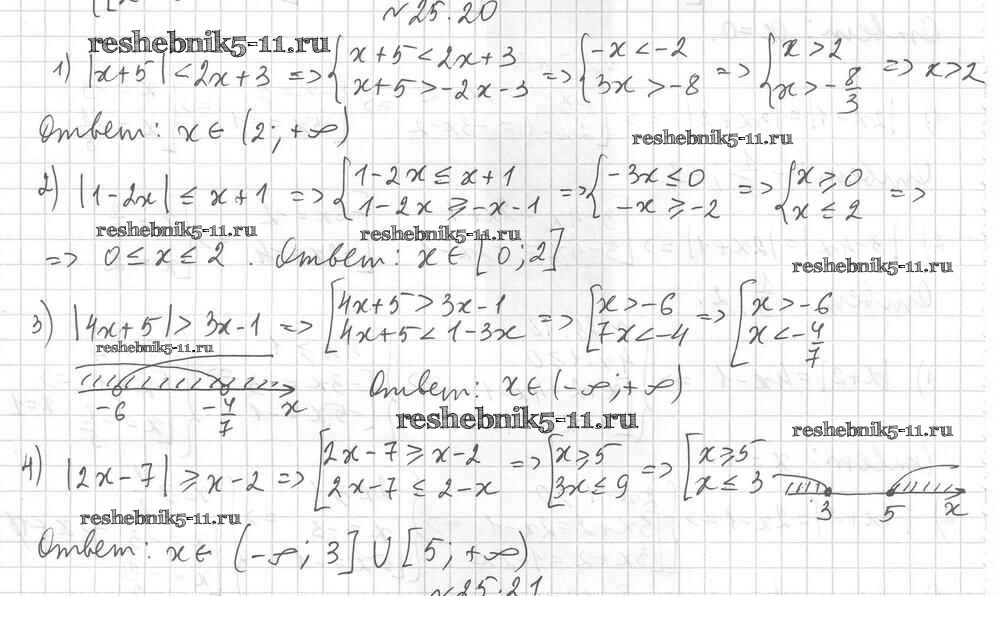 №25.20
reshebnik5-11.ru
1) |x+5| < 2x+3 => { x+5 < 2x+3 ; x+5 > -2x-3 => { -x < -2 ; 3x > -8 => { x > 2 ; x > -8/3 => x > 2
Ответ: x ∈ (2; +∞)
reshebnik5-11.ru
2) |1-2x| ≤ x+1 => { 1-2x ≤ x+1 ; 1-2x ≥ -x-1 => { -3x ≤ 0 ; -x ≥ -2 => { x ≥ 0 ; x ≤ 2 =>
reshebnik5-11.ru
reshebnik5-11.ru
=> 0 ≤ x ≤ 2 . Ответ: x ∈ [0; 2]
reshebnik5-11.ru
3) |4x+5| > 3x-1 => [ 4x+5 > 3x-1 ; 4x+5 < 1-3x => [ x > -6 ; 7x < -4 => [ x > -6 ; x < -4/7
reshebnik5-11.ru
-6 -4/7 x
Ответ: x ∈ (-∞; +∞)
reshebnik5-11.ru
reshebnik5-11.ru
4) |2x-7| ≥ x-2 => [ 2x-7 ≥ x-2 ; 2x-7 ≤ 2-x => [ x ≥ 5 ; 3x ≤ 9 => [ x ≥ 5 ; x ≤ 3
3 5 x
reshebnik5-11.ru
Ответ: x ∈ (-∞; 3] ∪ [5; +∞)
№25.21